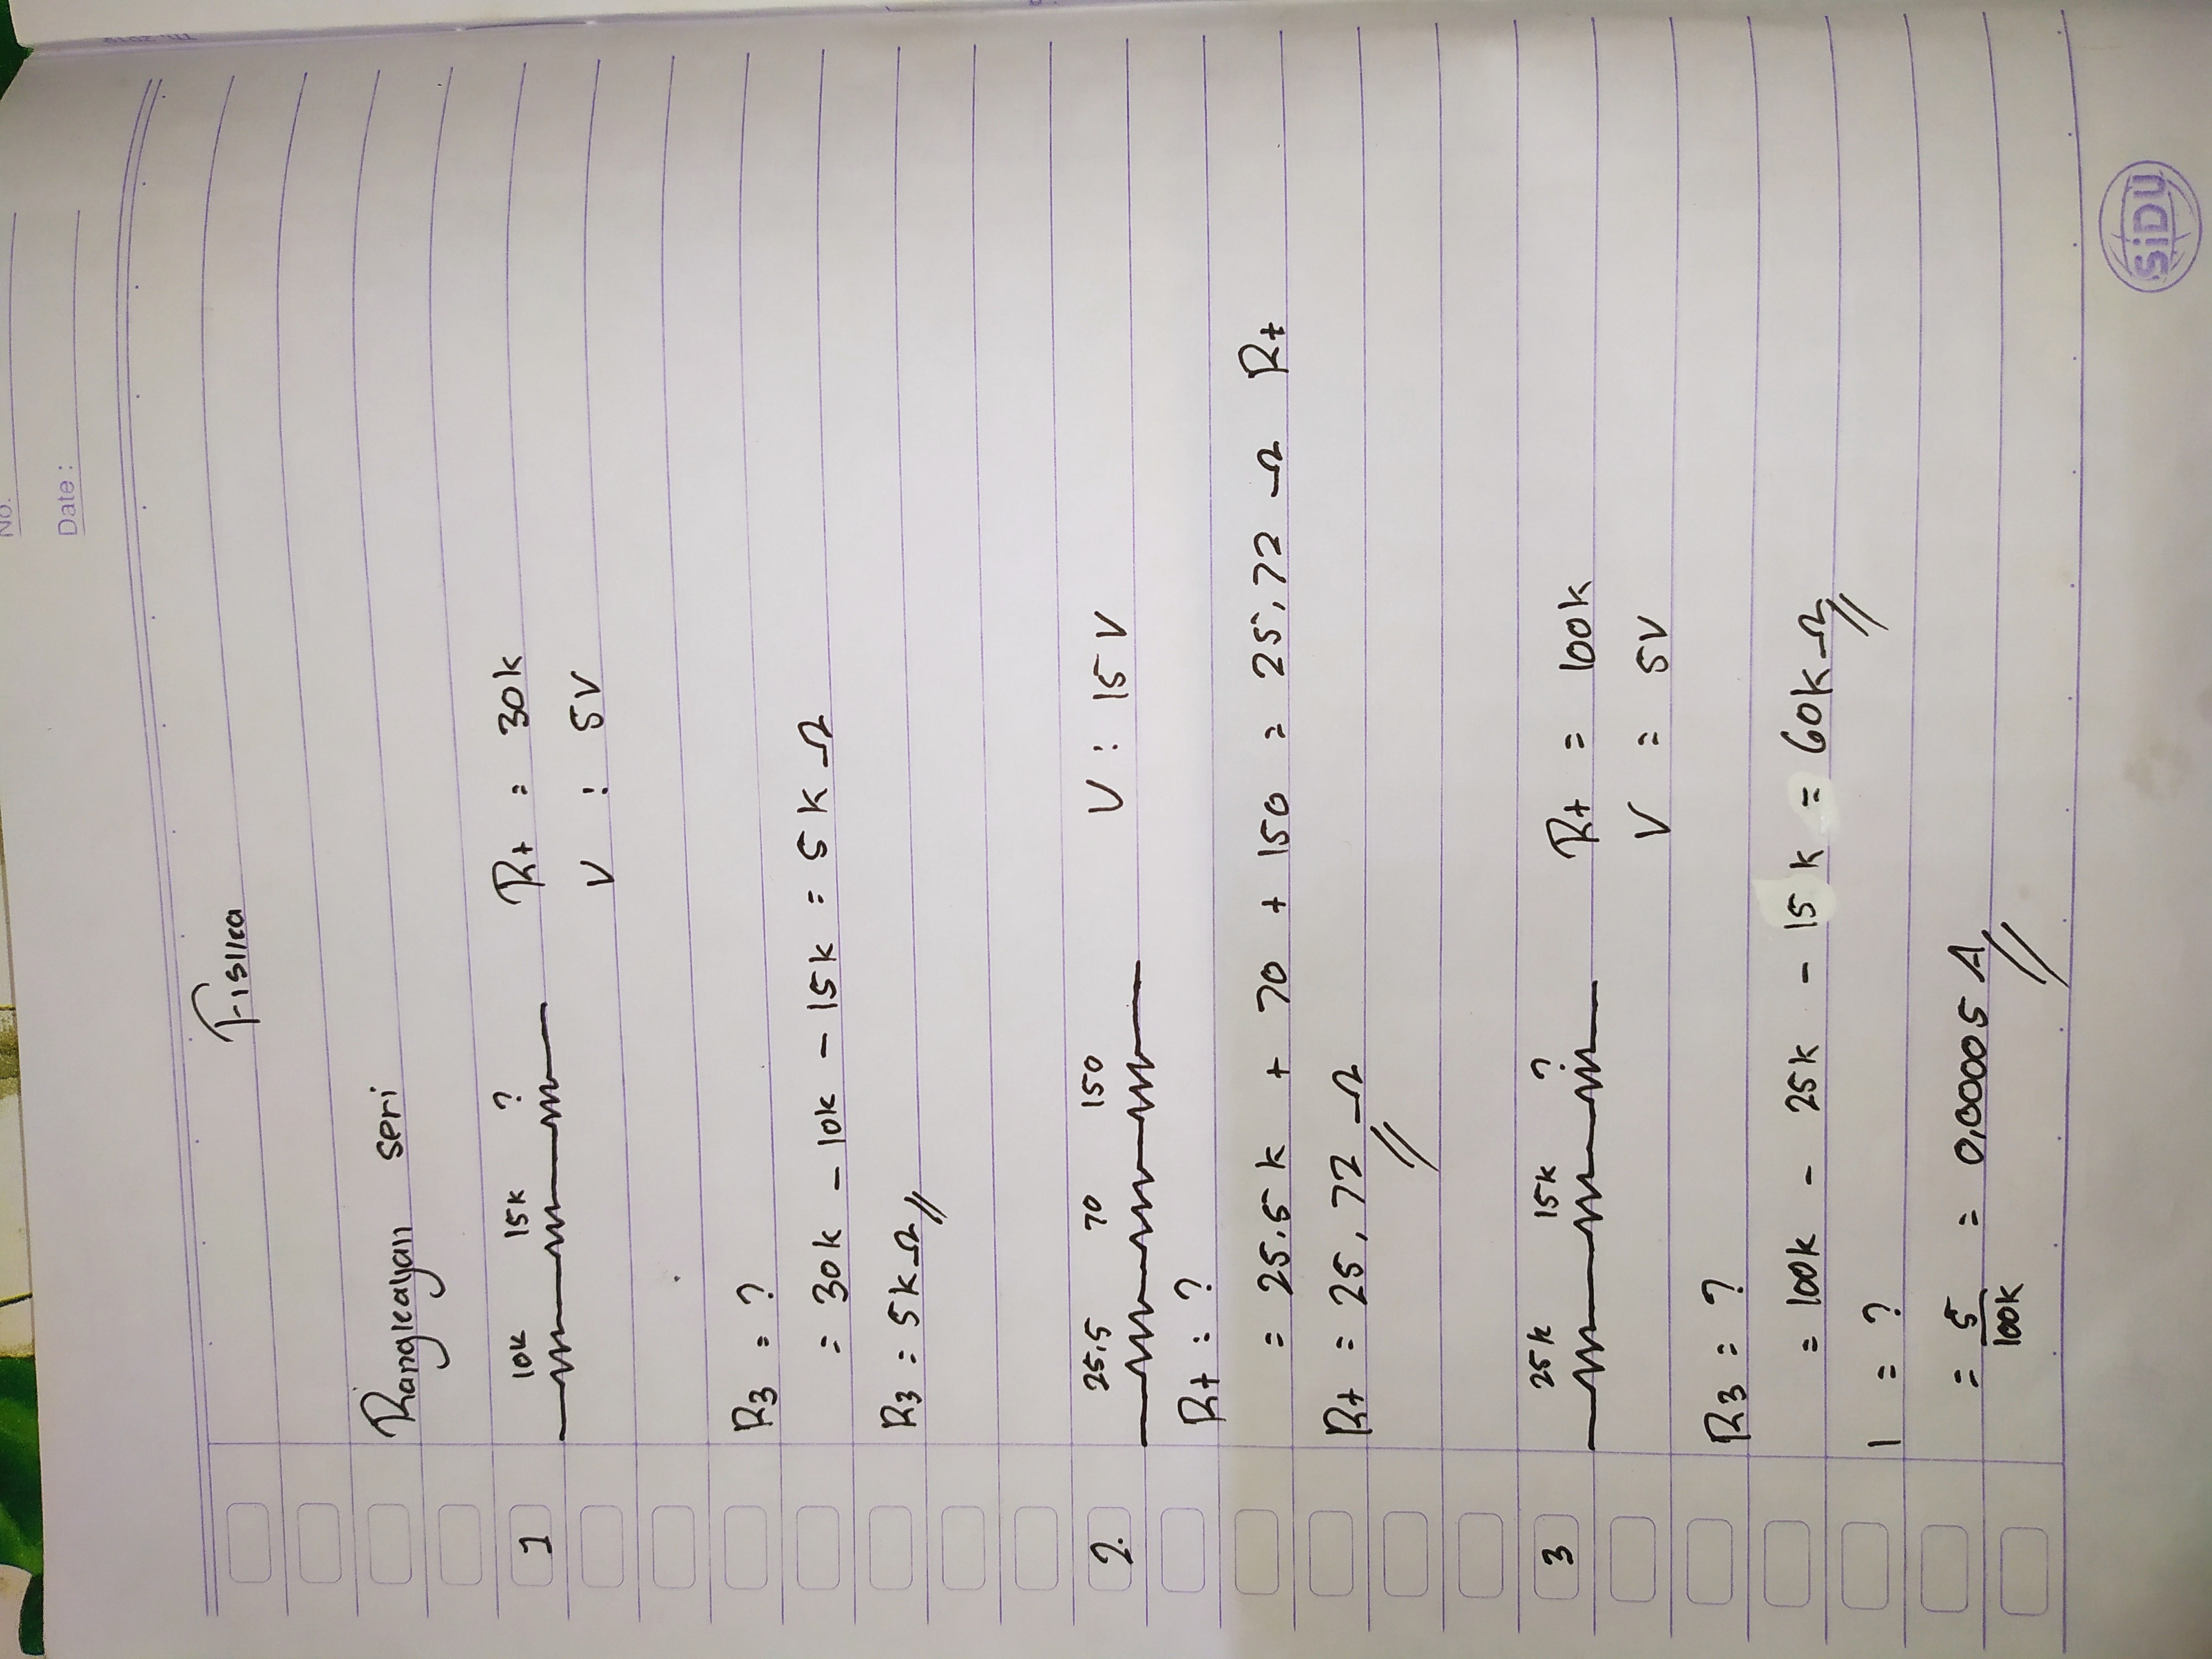 No.
Date :
Fisika
Rangkaian seri
1 10k 15k ? Rt = 30k
V : 5V
R3 = ?
= 30k - 10k - 15k = 5k Ω
R3 = 5k Ω //
2. 25,5 70 150 V : 15 V
Rt : ?
= 25,5 k + 70 + 150 = 25,72 Ω Rt
Rt = 25,72 Ω //
3 25k 15k ? Rt = 100k
V = 5V
R3 = ?
= 100k - 25k - 15k = 60k Ω //
I = ?
= 5/100k = 0,00005 A //
SiDU